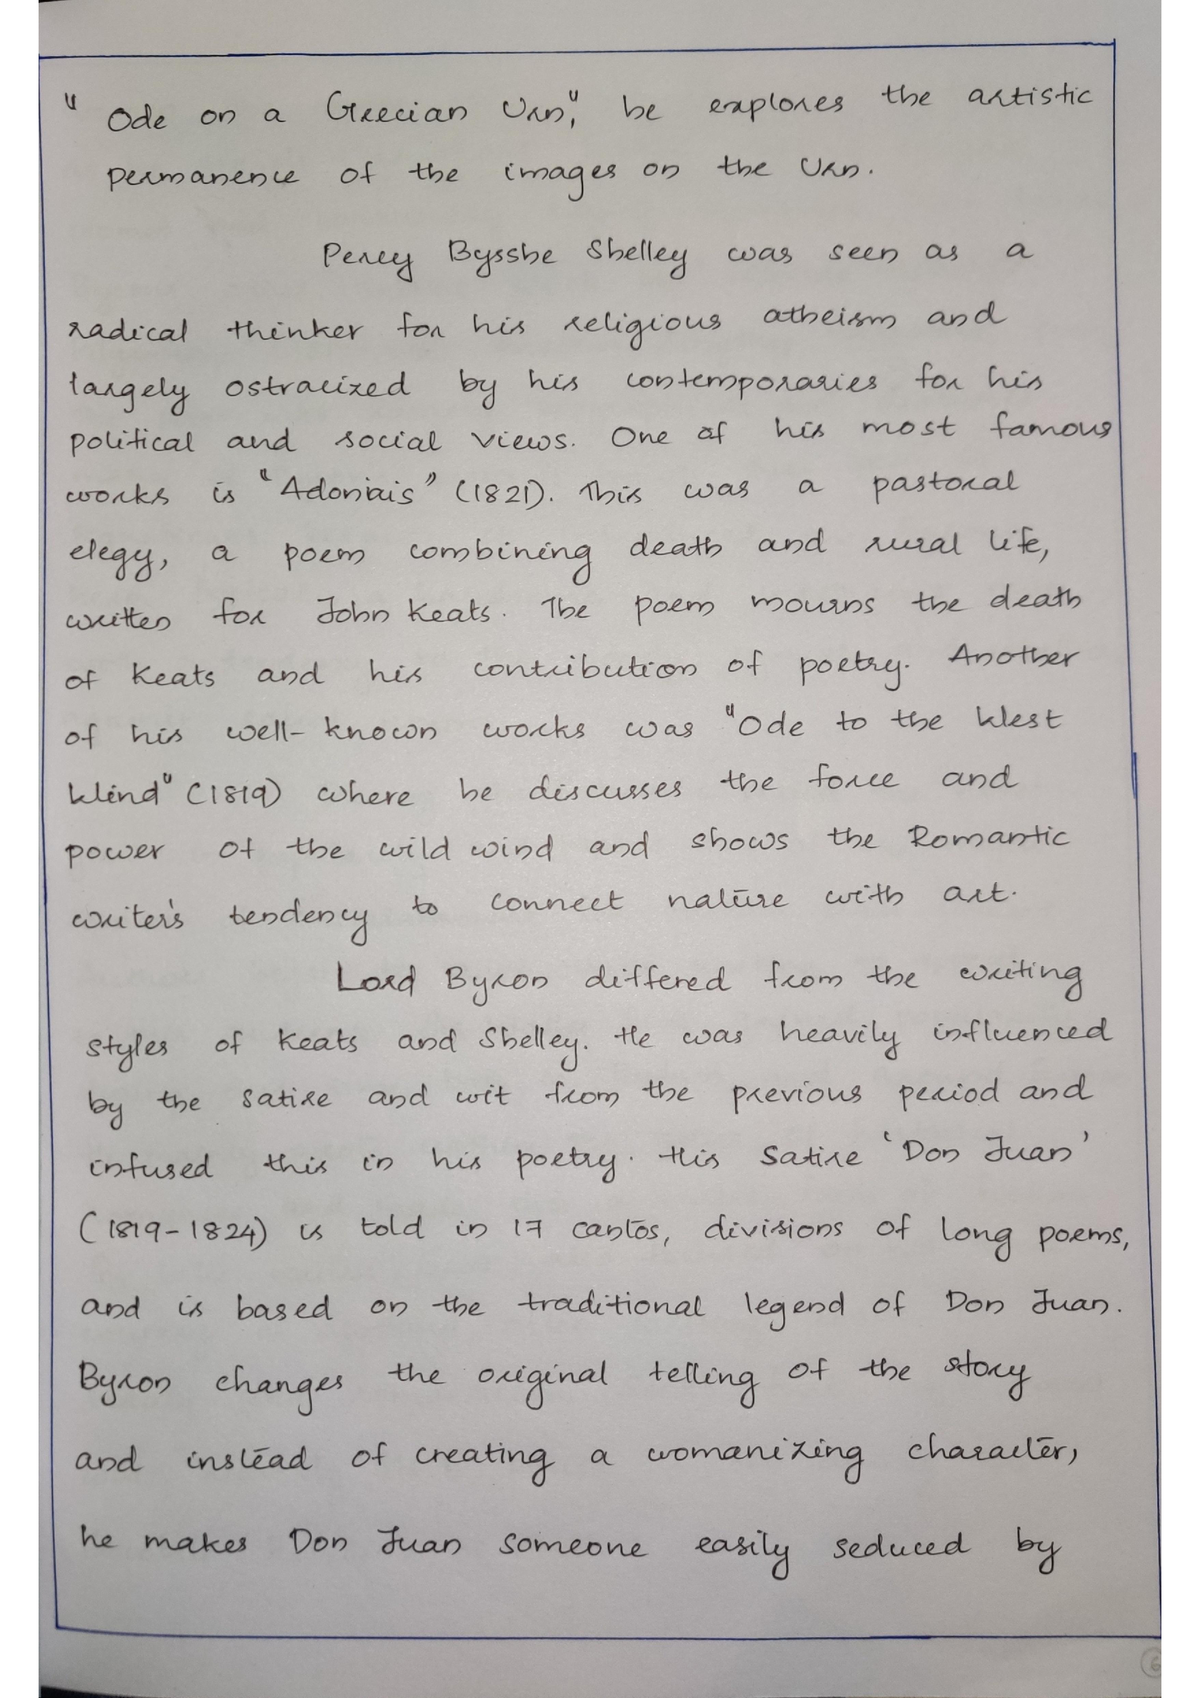 " Ode on a Grecian Urn," he explores the artistic
permanence of the images on the Urn.
Percy Bysshe Shelley was seen as a
radical thinker for his religious atheism and
largely ostracized by his contemporaries for his
political and social views. One of his most famous
works is "Adoniais" (1821). This was a pastoral
elegy, a poem combining death and rural life,
written for John Keats. The poem mourns the death
of Keats and his contribution of poetry. Another
of his well-known works was "Ode to the West
Wind" (1819) where he discusses the force and
power of the wild wind and shows the Romantic
writer's tendency to connect nature with art.
Lord Byron differed from the writing
styles of Keats and Shelley. He was heavily influenced
by the satire and wit from the previous period and
infused this in his poetry. His Satire 'Don Juan'
(1819-1824) is told in 17 cantos, divisions of long poems,
and is based on the traditional legend of Don Juan.
Byron changes the original telling of the story
and instead of creating a womanizing character,
he makes Don Juan someone easily seduced by
6